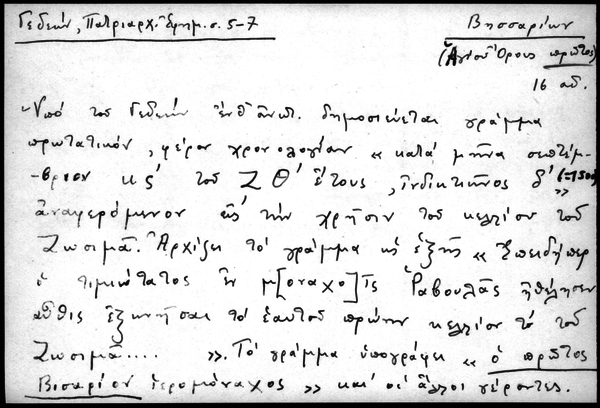 Γεδεών, Πατριαρχ. Ἐφημ. σ. 5-7
Βησσαρίων
(Ἁγίου Ὄρους πρῶτος)
16 αἰ.
Ὑπὸ τοῦ Γεδεὼν ἔνθ' ἀνωτ. δημοσιεύεται γράμμα
πρωτατικόν, φέρον χρονολογίαν « κατὰ μῆνα σεπτέμ-
-βριον κς' τοῦ ΖΘ' ἔτους, ἰνδικτιῶνος δ' » (=1500)
ἀναφερόμενον εἰς τὴν χρῆσιν τοῦ κελλίου τοῦ
Ζωσιμᾶ. Ἀρχίζει τὸ γράμμα ὡς ἑξῆς « Ἐπειδήπερ
ὁ τιμιώτατος ἐν μ[οναχο]ῖς Ῥαβουλᾶς ἠθέλησεν
αὖθις ἐξωνῆσαι τὸ ἑαυτοῦ πρώην κελλίον τὸ τοῦ
Ζωσιμᾶ.... ». Τὸ γράμμα ὑπογράφει « ὁ πρῶτος
Βισαρίον ἱερομόναχος » καὶ οἱ ἄλλοι γέροντες.